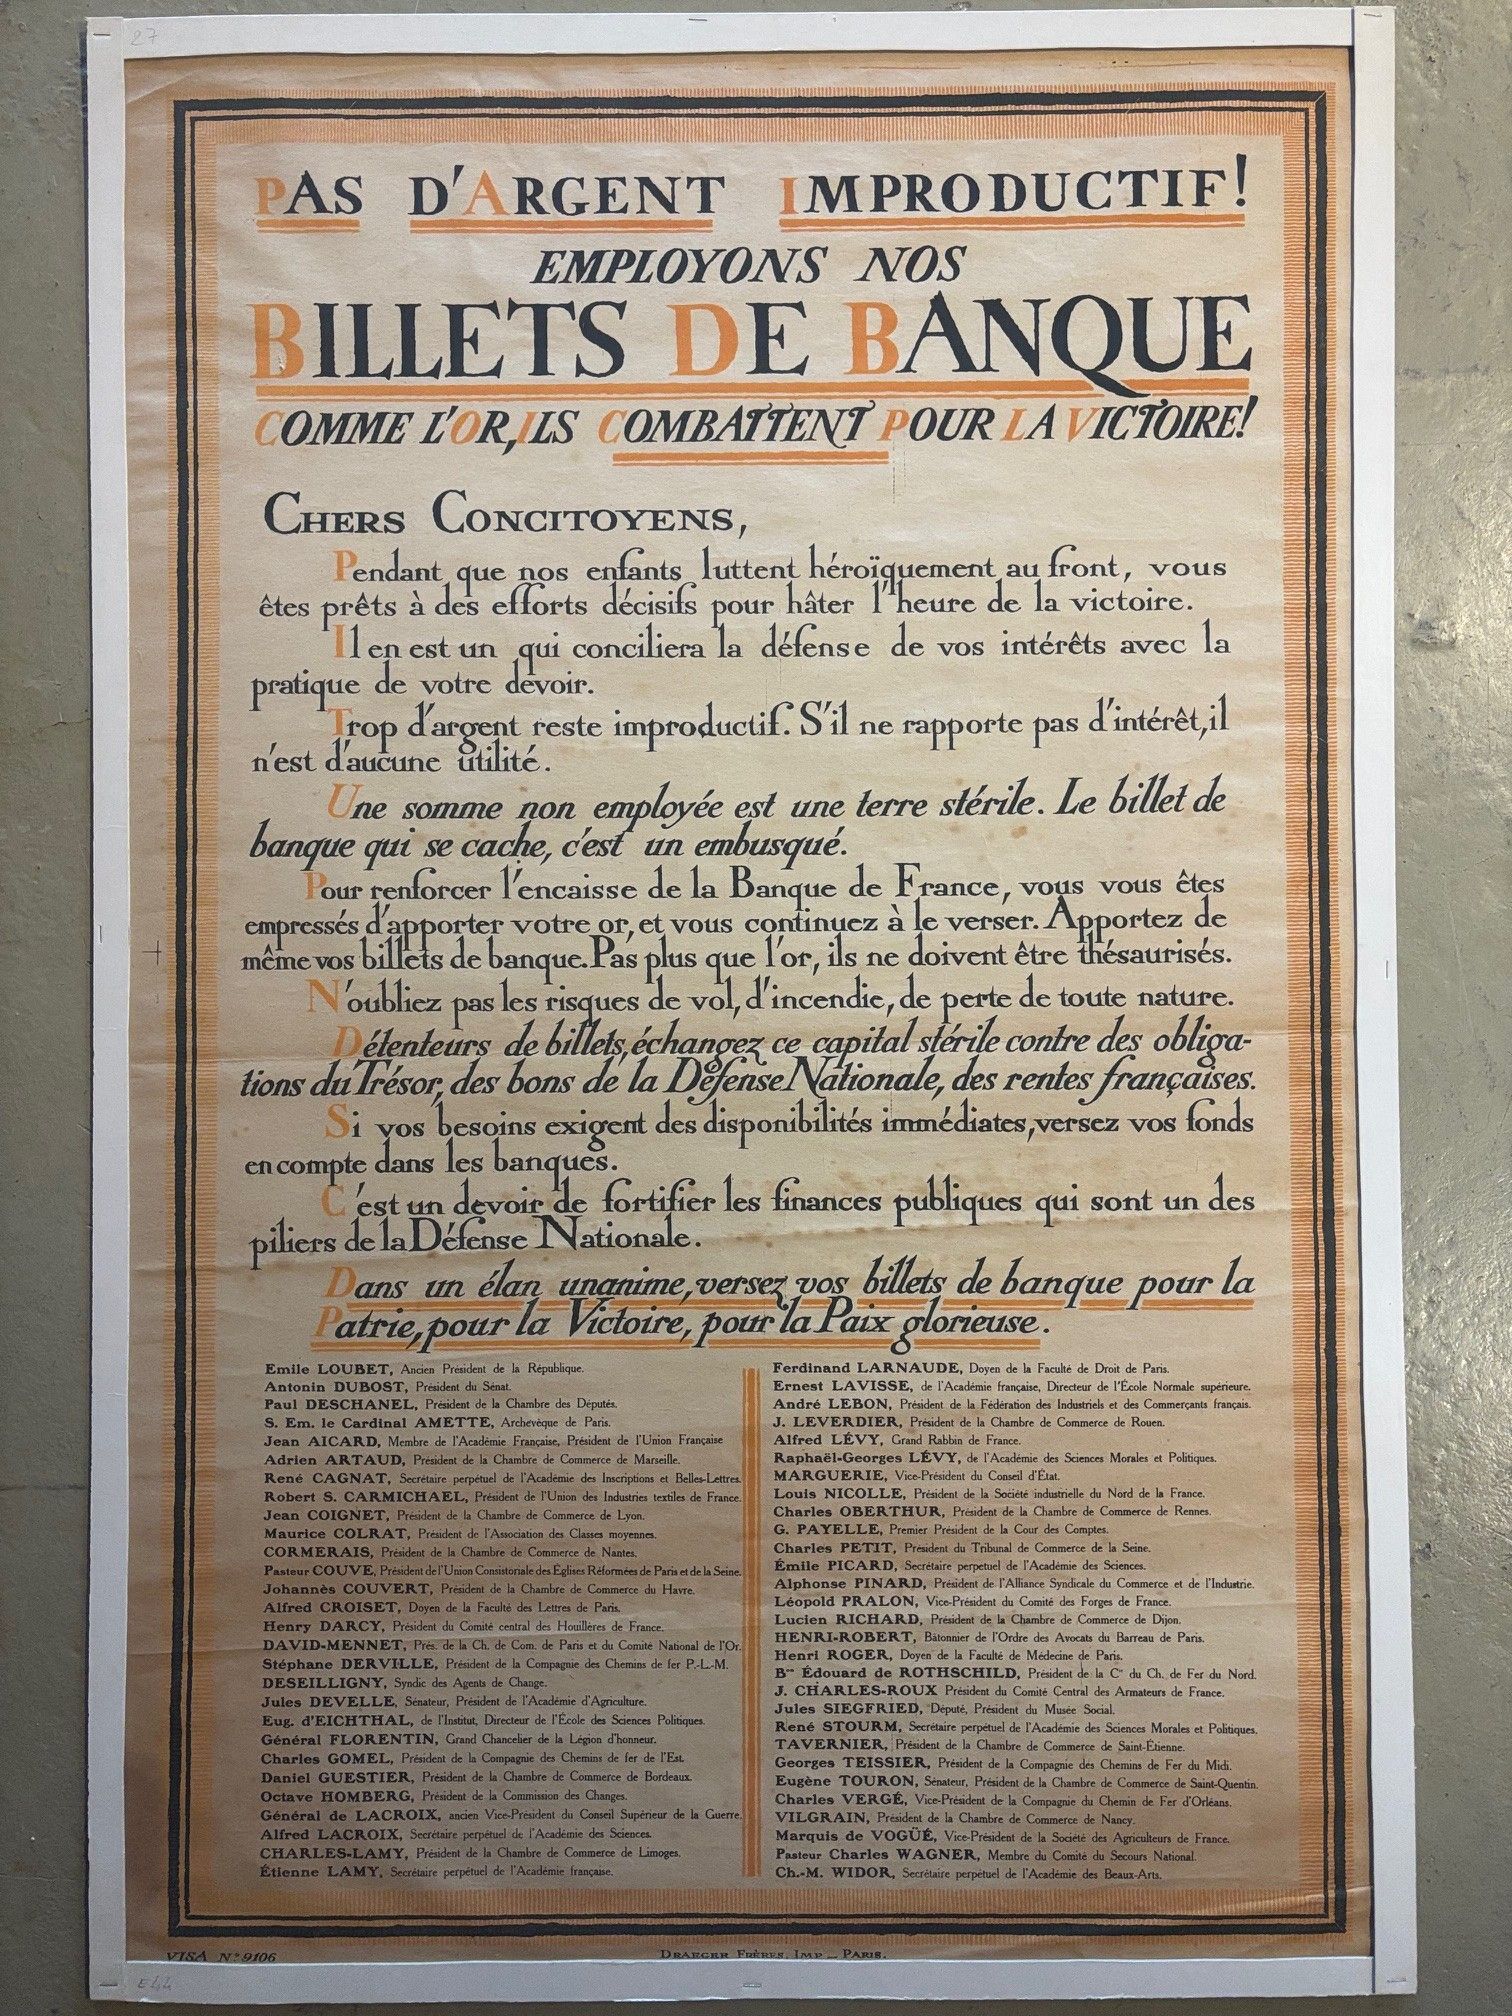 27
PAS D'ARGENT IMPRODUCTIF!
EMPLOYONS NOS
BILLETS DE BANQUE
COMME L'OR, ILS COMBATTENT POUR LA VICTOIRE!
CHERS CONCITOYENS,
Pendant que nos enfants luttent héroïquement au front, vous
êtes prêts à des efforts décisifs pour hâter l'heure de la victoire.
Il en est un qui conciliera la défense de vos intérêts avec la
pratique de votre devoir.
Trop d'argent reste improductif. S'il ne rapporte pas d'intérêt, il
n'est d'aucune utilité.
Une somme non employée est une terre stérile. Le billet de
banque qui se cache, c'est un embusqué.
Pour renforcer l'encaisse de la Banque de France, vous vous êtes
empressés d'apporter votre or, et vous continuez à le verser. Apportez de
même vos billets de banque. Pas plus que l'or, ils ne doivent être thésaurisés.
N'oubliez pas les risques de vol, d'incendie, de perte de toute nature.
Détenteurs de billets, échangez ce capital stérile contre des obliga-
tions du Trésor, des bons de la Défense Nationale, des rentes françaises.
Si vos besoins exigent des disponibilités immédiates, versez vos fonds
en compte dans les banques.
C'est un devoir de fortifier les finances publiques qui sont un des
piliers de la Défense Nationale.
Dans un élan unanime, versez vos billets de banque pour la
Patrie, pour la Victoire, pour la Paix glorieuse.
Emile LOUBET, Ancien Président de la République.
Antonin DUBOST, Président du Sénat.
Paul DESCHANEL, Président de la Chambre des Députés.
S. Em. le Cardinal AMETTE, Archevêque de Paris.
Jean AICARD, Membre de l'Académie Française, Président de l'Union Française
Adrien ARTAUD, Président de la Chambre de Commerce de Marseille.
René CAGNAT, Secrétaire perpétuel de l'Académie des Inscriptions et Belles-Lettres.
Robert S. CARMICHAEL, Président de l'Union des Industries textiles de France.
Jean COIGNET, Président de la Chambre de Commerce de Lyon.
Maurice COLRAT, Président de l'Association des Classes moyennes.
CORMERAIS, Président de la Chambre de Commerce de Nantes.
Pasteur COUVE, Président de l'Union Consistoriale des Églises Réformées de Paris et de la Seine.
Johannès COUVERT, Président de la Chambre de Commerce du Havre.
Alfred CROISET, Doyen de la Faculté des Lettres de Paris.
Henry DARCY, Président du Comité central des Houillères de France.
DAVID-MENNET, Prés. de la Ch. de Com. de Paris et du Comité National de l'Or.
Stéphane DERVILLE, Président de la Compagnie des Chemins de fer P.-L.-M.
DESEILLIGNY, Syndic des Agents de Change.
Jules DEVELLE, Sénateur, Président de l'Académie d'Agriculture.
Eug. d'EICHTHAL, de l'Institut, Directeur de l'École des Sciences Politiques.
Général FLORENTIN, Grand Chancelier de la Légion d'honneur.
Charles GOMEL, Président de la Compagnie des Chemins de fer de l'Est.
Daniel GUESTIER, Président de la Chambre de Commerce de Bordeaux.
Octave HOMBERG, Président de la Commission des Changes.
Général de LACROIX, ancien Vice-Président du Conseil Supérieur de la Guerre.
Alfred LACROIX, Secrétaire perpétuel de l'Académie des Sciences.
CHARLES-LAMY, Président de la Chambre de Commerce de Limoges.
Étienne LAMY, Secrétaire perpétuel de l'Académie française.
Ferdinand LARNAUDE, Doyen de la Faculté de Droit de Paris.
Ernest LAVISSE, de l'Académie française, Directeur de l'École Normale supérieure.
André LEBON, Président de la Fédération des Industriels et des Commerçants français.
J. LEVERDIER, Président de la Chambre de Commerce de Rouen.
Alfred LÉVY, Grand Rabbin de France.
Raphaël-Georges LÉVY, de l'Académie des Sciences Morales et Politiques.
MARGUERIE, Vice-Président du Conseil d'État.
Louis NICOLLE, Président de la Société industrielle du Nord de la France.
Charles OBERTHUR, Président de la Chambre de Commerce de Rennes.
G. PAYELLE, Premier Président de la Cour des Comptes.
Charles PETIT, Président du Tribunal de Commerce de la Seine.
Émile PICARD, Secrétaire perpétuel de l'Académie des Sciences.
Alphonse PINARD, Président de l'Alliance Syndicale du Commerce et de l'Industrie.
Léopold PRALON, Vice-Président du Comité des Forges de France.
Lucien RICHARD, Président de la Chambre de Commerce de Dijon.
HENRI-ROBERT, Bâtonnier de l'Ordre des Avocats du Barreau de Paris.
Henri ROGER, Doyen de la Faculté de Médecine de Paris.
Bon Édouard de ROTHSCHILD, Président de la Cie du Ch. de Fer du Nord.
J. CHARLES-ROUX Président du Comité Central des Armateurs de France.
Jules SIEGFRIED, Député, Président du Musée Social.
René STOURM, Secrétaire perpétuel de l'Académie des Sciences Morales et Politiques.
TAVERNIER, Président de la Chambre de Commerce de Saint-Étienne.
Georges TEISSIER, Président de la Compagnie des Chemins de Fer du Midi.
Eugène TOURON, Sénateur, Président de la Chambre de Commerce de Saint-Quentin.
Charles VERGÉ, Vice-Président de la Compagnie du Chemin de Fer d'Orléans.
VILGRAIN, Président de la Chambre de Commerce de Nancy.
Marquis de VOGÜÉ, Vice-Président de la Société des Agriculteurs de France.
Pasteur Charles WAGNER, Membre du Comité du Secours National.
Ch.-M. WIDOR, Secrétaire perpétuel de l'Académie des Beaux-Arts.
VISA No 9106
DRAEGER FRÈRES, IMP — PARIS.
E44